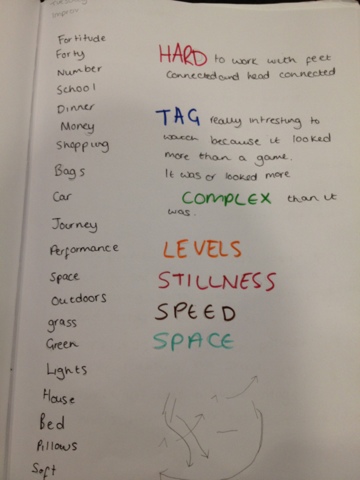 improv
Fortitude
Forty
Number
School
Dinner
Money
Shopping
Bags
Car
Journey
Performance
Space
Outdoors
grass
Green
Lights
House
Bed
Pillows
Soft
HARD to work with feet
connected and head connected
TAG really intresting to
watch because it looked
more than a game.
It was or looked more
COMPLEX than it
was.
LEVELS
STILLNESS
SPEED
SPACE